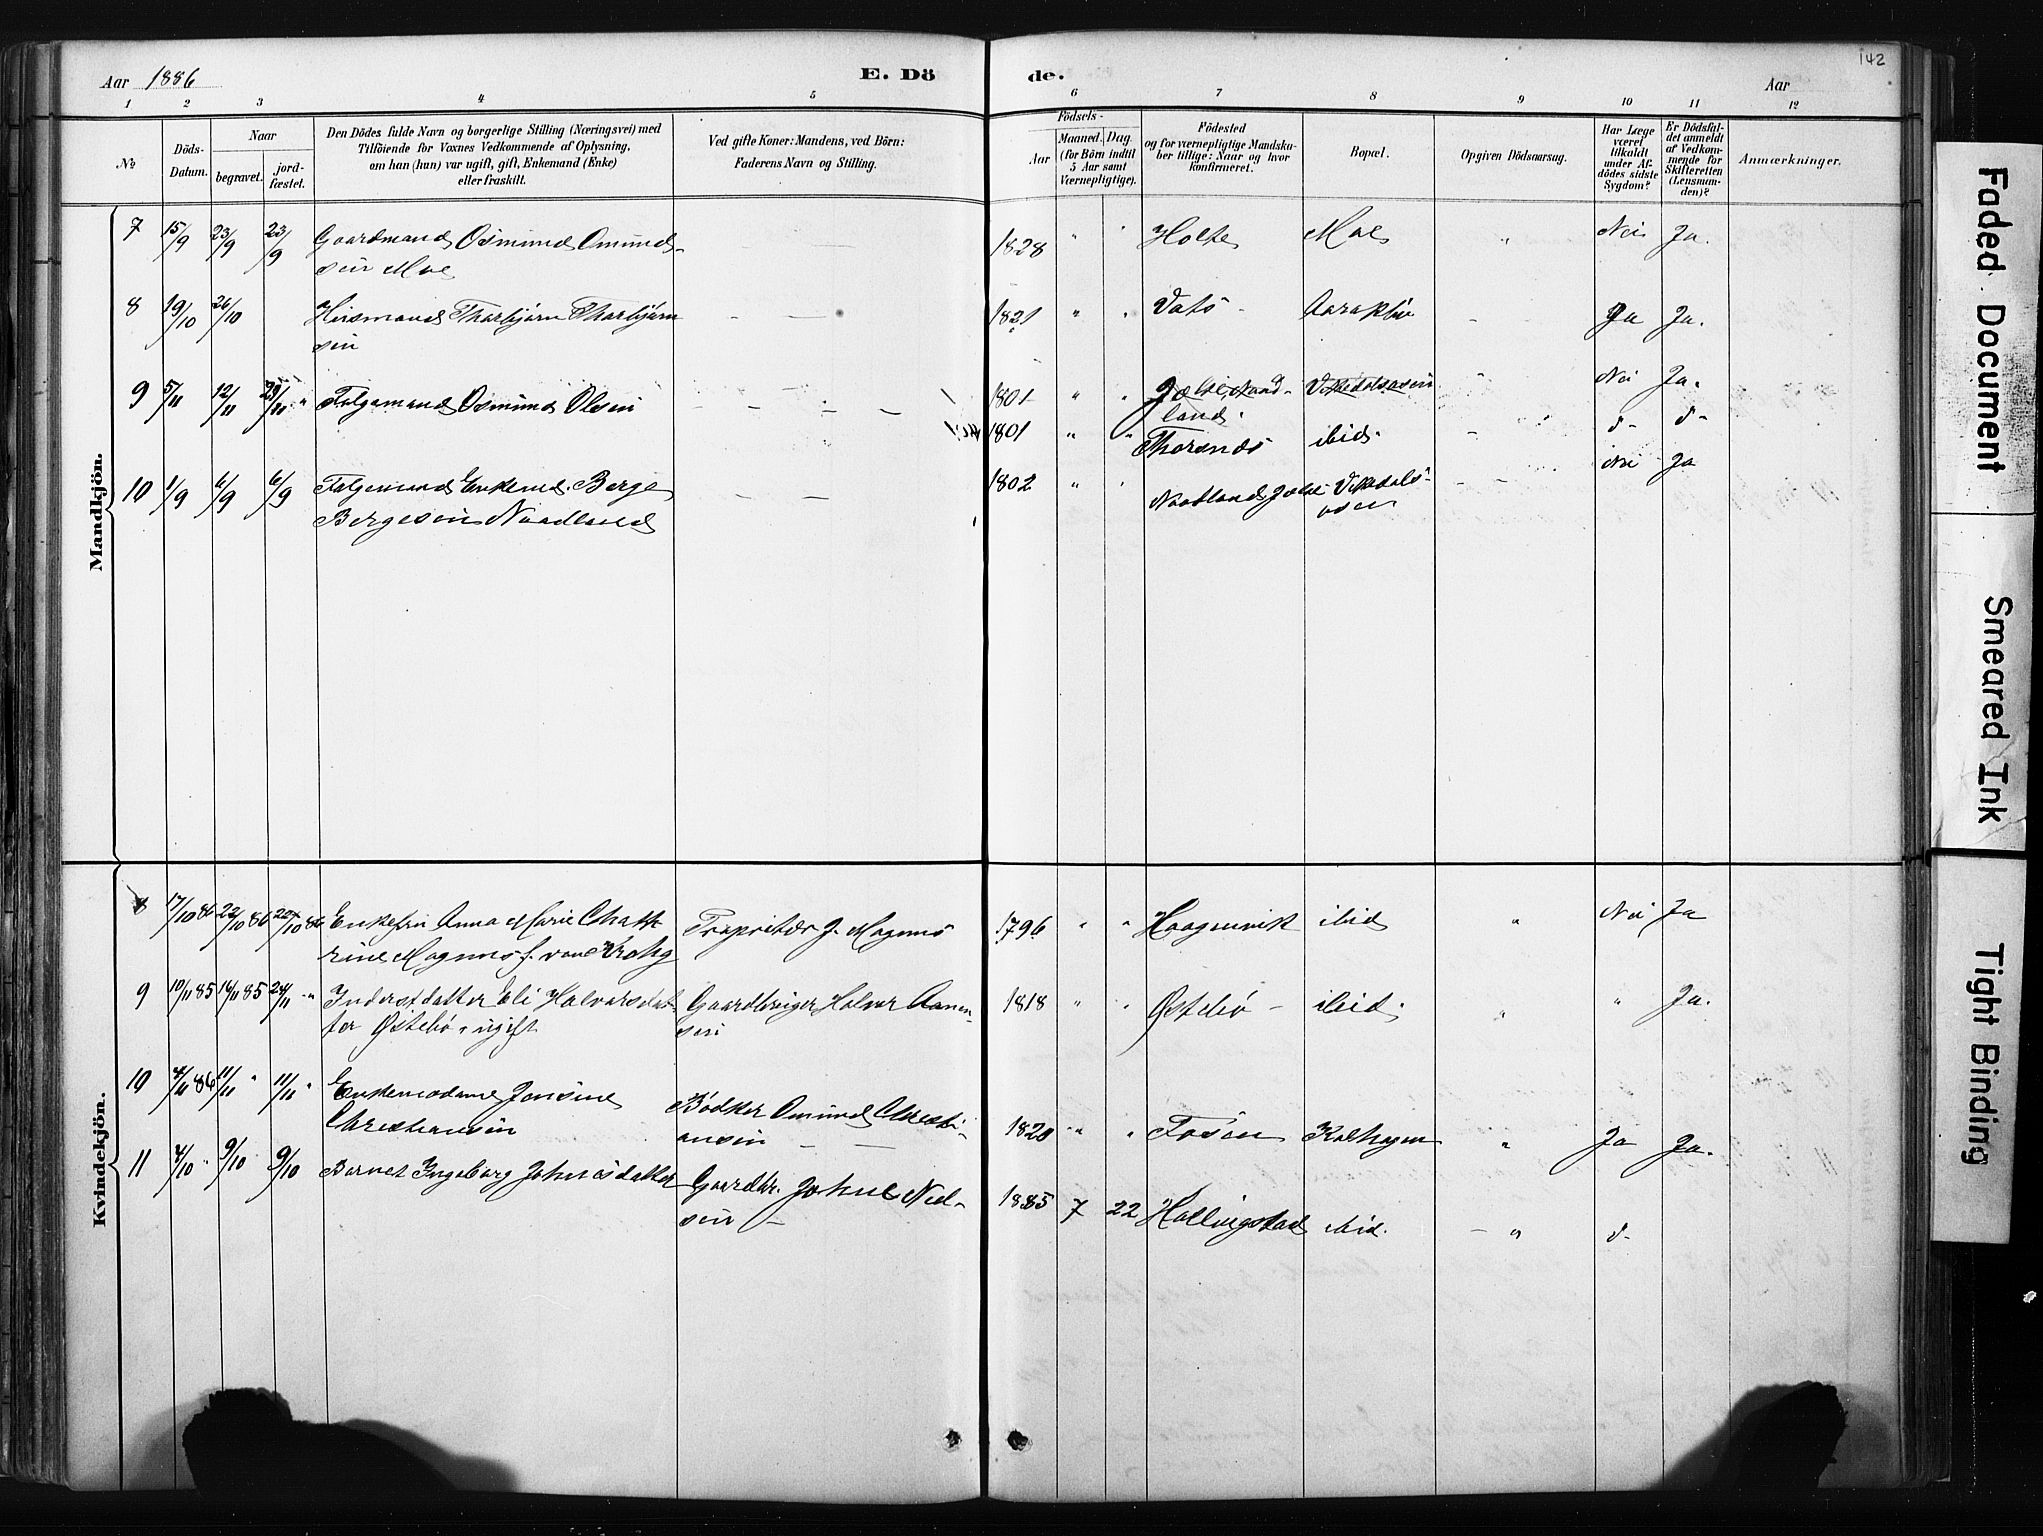 142
Aar 1886
E. Dö
de.
Aar
1 2 3 4 5 6 7 8 9 10 11 12
No
Döds-
Datum.
Naar
begravet.
jord-
fæstet.
Den Dödes fulde Navn og borgerlige Stilling (Næringsvei) med
Tilföiende for Voxnes Vedkommende af Oplysning,
om han (hun) var ugift, gift, Enkemand (Enke)
eller fraskilt.
Ved gifte Koner: Mandens, ved Börn:
Faderens Navn og Stilling.
Födsels-
Aar
Maaned. Dag.
(for Börn indtil
5 Aar samt
Værnepligtige).
Födested
og for værnepligtige Mandska-
ber tillige: Naar og hvor
konfirmeret.
Bopæl.
Opgiven Dödsaarsag.
Har Læge
været
tilkaldt
under Af-
dödes sidste
Sygdom?
Er Dödsfal-
det anmeldt
af Vedkom-
mende for
Skifteretten
(Lensman-
den)?
Anmærkninger.
Mandkjön.
7 15/9 23/9 23/9 Gaardmand Osmund Omund-
sen Moe
1828 " " Holte Moe " Nei Ja.
8 19/10 26/10 Huusmand Thorbjørn Thorbjørn
sen
1821 " " Vats - Ja Ja.
9 5/11 12/11 Folgemand Osmund Olsen
1801 " " Vikedalsosen Nei Ja.
land.
1801 " " Thorsnes ibid. d- d-
10 1/9 6/9 6/9 Folgemand Enkemd. Berge
Bergesen Naadland
1802 " " Naadland Vikedals-
osen Nei Ja
Kvindekjön.
8 17/10 86 22/10 86 22/10 86 Enkefru Anna Marie Chath
rine Magnus f. von Krohg
Proprietær J. Magnus
1796 " " ibid " Nei Ja
9 10/11 85 14/11 85 24/11 " Inderstdatter Eli Halvorsdat
ter Østebø, ugift
Gaardbruger Halvor Aanen-
sen
1818 " " Østebø - ibid. " " Ja.
10 4/11 86 11/11 " 11/11 " Enkemadame Jensine
Christiansen
Bødker Omund Christi-
ansen
1820 " " Fosen Kolhagen " Ja Ja.
11 4/10 " 9/10 9/10 Barnet Ingeborg Johnesdatter
Gaardbr. Johne Niel-
sen -
1885 7 22 Hallingstad ibid. - " d-
Faded Document
Smeared Ink
Tight Binding